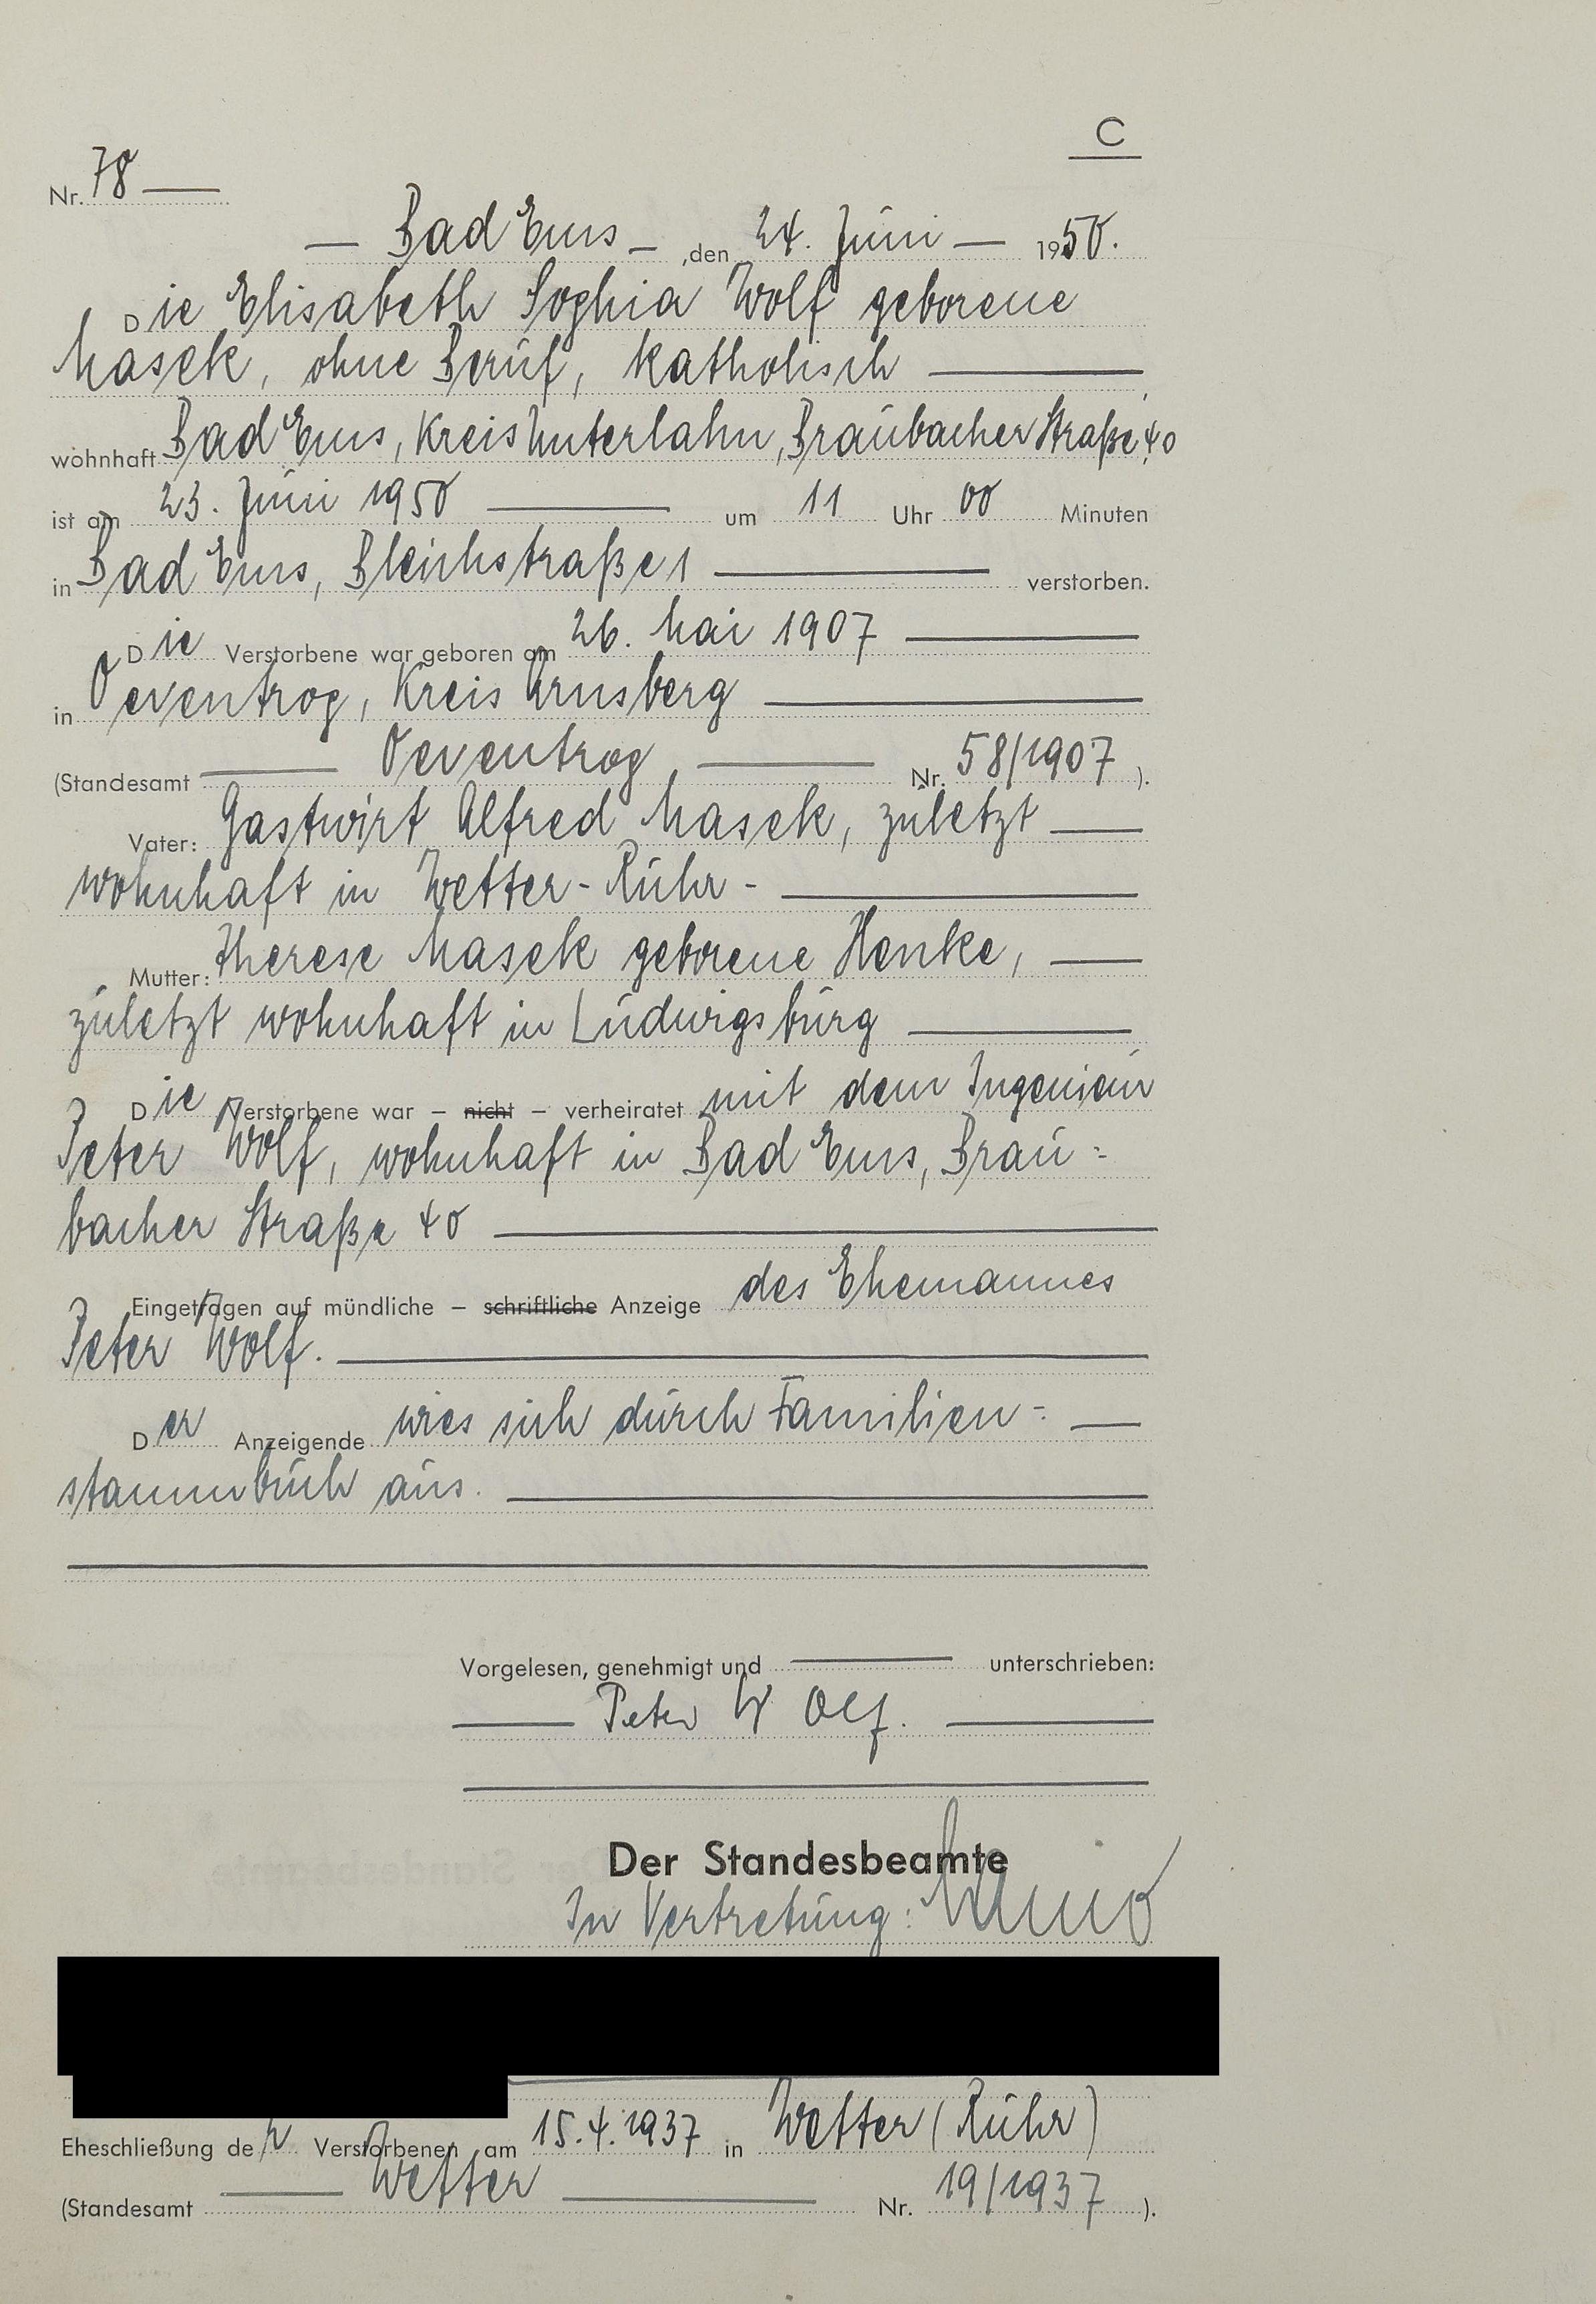 C
Nr. 78
Bad Ems, den 24. Juni 1950.
Die Elisabeth Sophia Wolf geborene
Masek, ohne Beruf, katholisch
wohnhaft Bad Ems, Kreis Unterlahn, Braubacher Straße 40,
ist am 23. Juni 1950 um 11 Uhr 00 Minuten
in Bad Ems, Bleichstraße 1 verstorben.
Die Verstorbene war geboren am 26. Mai 1907
in Oeventrog, Kreis Arnsberg
(Standesamt Oeventrog Nr. 58/1907).
Vater: Gastwirt Alfred Masek, zuletzt
wohnhaft in Wetter-Ruhr-
Mutter: Therese Masek geborene Henke,
zuletzt wohnhaft in Ludwigsburg
Die Verstorbene war – nicht – verheiratet mit dem Ingenieur
Peter Wolf, wohnhaft in Bad Ems, Brau=
bacher Straße 40
Eingetragen auf mündliche – schriftliche Anzeige des Ehemannes
Peter Wolf.
Der Anzeigende wies sich durch Familien=
stammbuch aus.
Vorgelesen, genehmigt und unterschrieben:
Peter Wolf.
Der Standesbeamte
In Vertretung:
Eheschließung der Verstorbenen am 15.4.1937 in Wetter (Ruhr)
(Standesamt Wetter Nr. 19/1937).